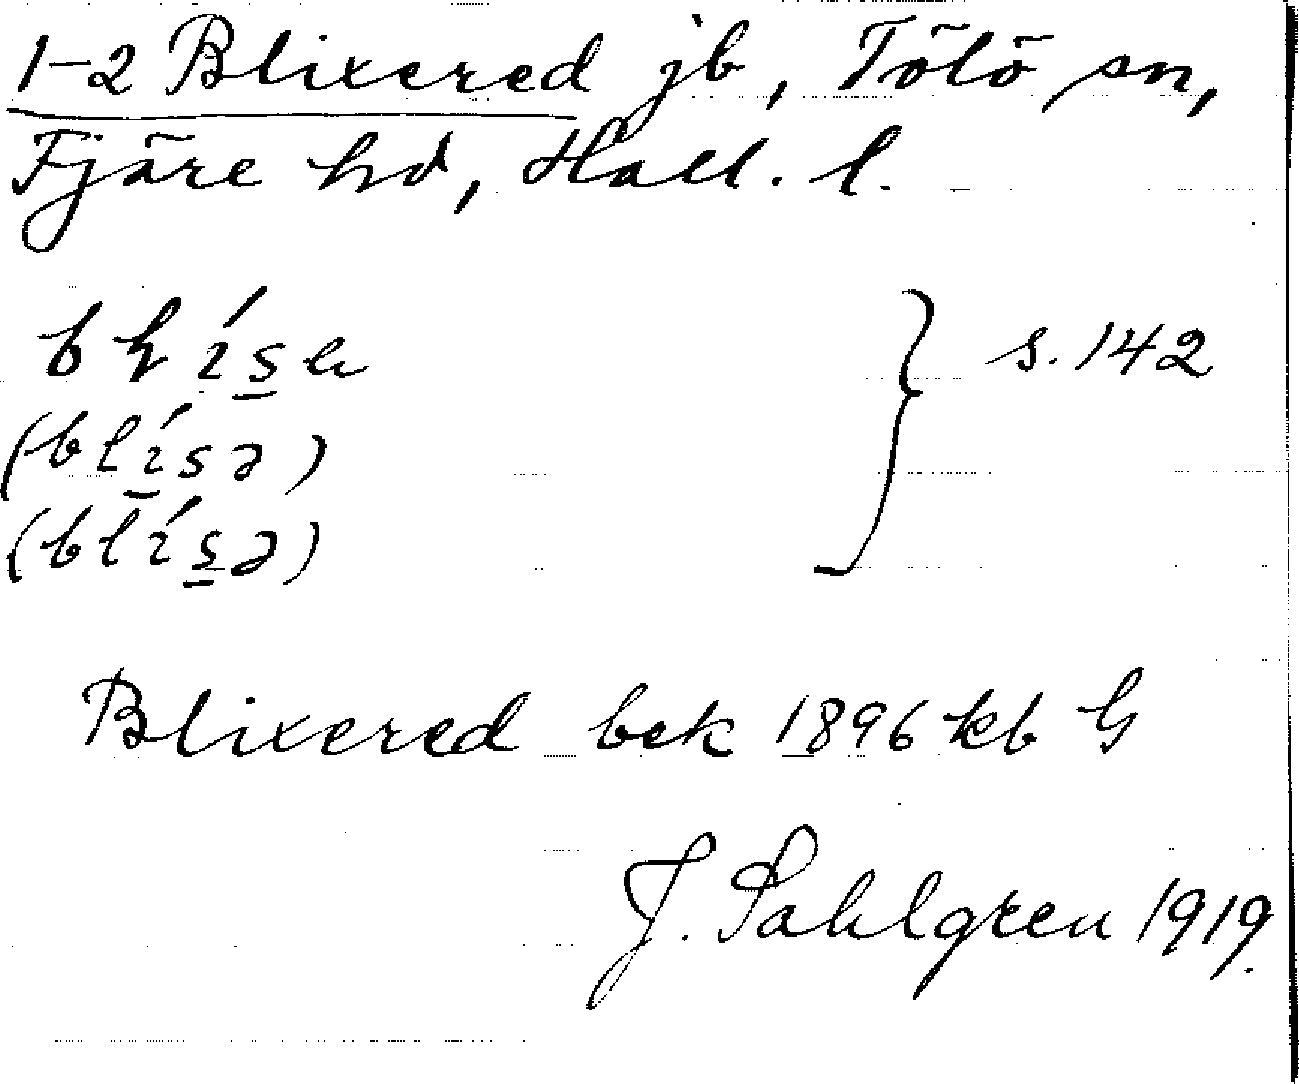 1-2 Blixered jb, Tölö sn,
Fjäre hd, Hall. l.
s. 142
(blísə)
(blísə)
Blixered bek 1896 kb G
J. Sahlgren 1919.